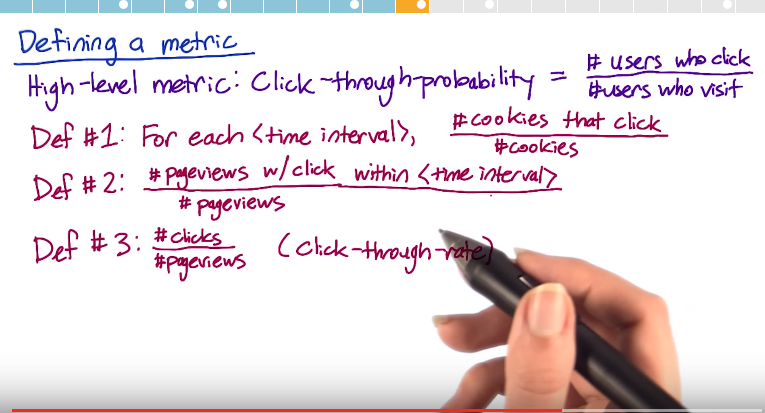 Defining a metric
High-level metric: Click-through-probability = # users who click / # users who visit
Def #1: For each <time interval>, # cookies that click / # cookies
Def #2: # pageviews w/click within <time interval> / # pageviews
Def #3: # clicks / # pageviews (click-through-rate)